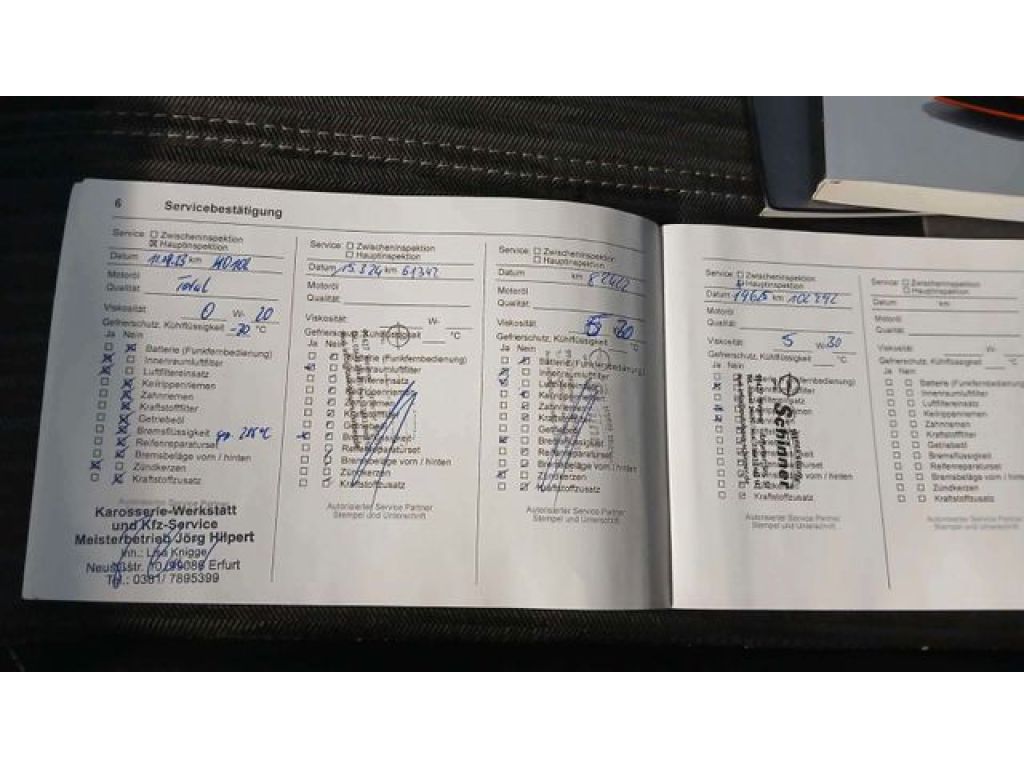 6 Servicebestätigung
Service: Zwischeninspektion
Hauptinspektion
Datum km
Motoröl
Qualität Total
Viskosität 0 W- 20
Gefrierschutz, Kühlflüssigkeit -30 °C
Ja Nein
Batterie (Funkfernbedienung)
Innenraumluftfilter
Luftfiltereinsatz
Keilrippenriemen
Zahnriemen
Kraftstofffilter
Getriebeöl
Bremsflüssigkeit
Reifenreparaturset
Bremsbeläge vorn / hinten
Zündkerzen
Kraftstoffzusatz
Autorisierter Service Partner
Karosserie-Werkstatt
und Kfz-Service
Meisterbetrieb Jörg Hilpert
Inh.: Lisa Knigge
99086 Erfurt
Tel.: 0361/ 7895399
Service: Zwischeninspektion
Hauptinspektion
Datum 15.3.24 km 61342
Motoröl
Qualität:
Viskosität: W-
Gefrierschutz, Kühlflüssigkeit °C
Ja Nein
Batterie (Funkfernbedienung)
Innenraumluftfilter
Luftfiltereinsatz
Keilrippenriemen
Zahnriemen
Kraftstofffilter
Getriebeöl
Bremsflüssigkeit
Reifenreparaturset
Bremsbeläge vorn / hinten
Zündkerzen
Kraftstoffzusatz
Autorisierter Service Partner
Stempel und Unterschrift
Service: Zwischeninspektion
Hauptinspektion
Datum km 82422
Motoröl
Qualität:
Viskosität: 5 30
Gefrierschutz, Kühlflüssigkeit °C
Ja Nein
Batterie (Funkfernbedienung)
Innenraumluftfilter
Luftfiltereinsatz
Keilrippenriemen
Zahnriemen
Kraftstofffilter
Getriebeöl
Bremsflüssigkeit
Reifenreparaturset
Bremsbeläge vorn / hinten
Zündkerzen
Kraftstoffzusatz
Autorisierter Service Partner
Stempel und Unterschrift
Service: Zwischeninspektion
Hauptinspektion
Datum km
Motoröl
Qualität:
Viskosität: 5 W- 30
Gefrierschutz, Kühlflüssigkeit °C
Ja Nein
Schinner
Kraftstoffzusatz
Autorisierter Service Partner
Stempel und Unterschrift
Service: Zwischeninspektion
Hauptinspektion
Datum km
Motoröl
Qualität:
Viskosität: W-
Gefrierschutz, Kühlflüssigkeit °C
Ja Nein
Batterie (Funkfernbedienung)
Innenraumluftfilter
Luftfiltereinsatz
Keilrippenriemen
Zahnriemen
Kraftstofffilter
Getriebeöl
Bremsflüssigkeit
Reifenreparaturset
Bremsbeläge vorn / hinten
Zündkerzen
Kraftstoffzusatz
Autorisierter Service Partner
Stempel und Unterschrift